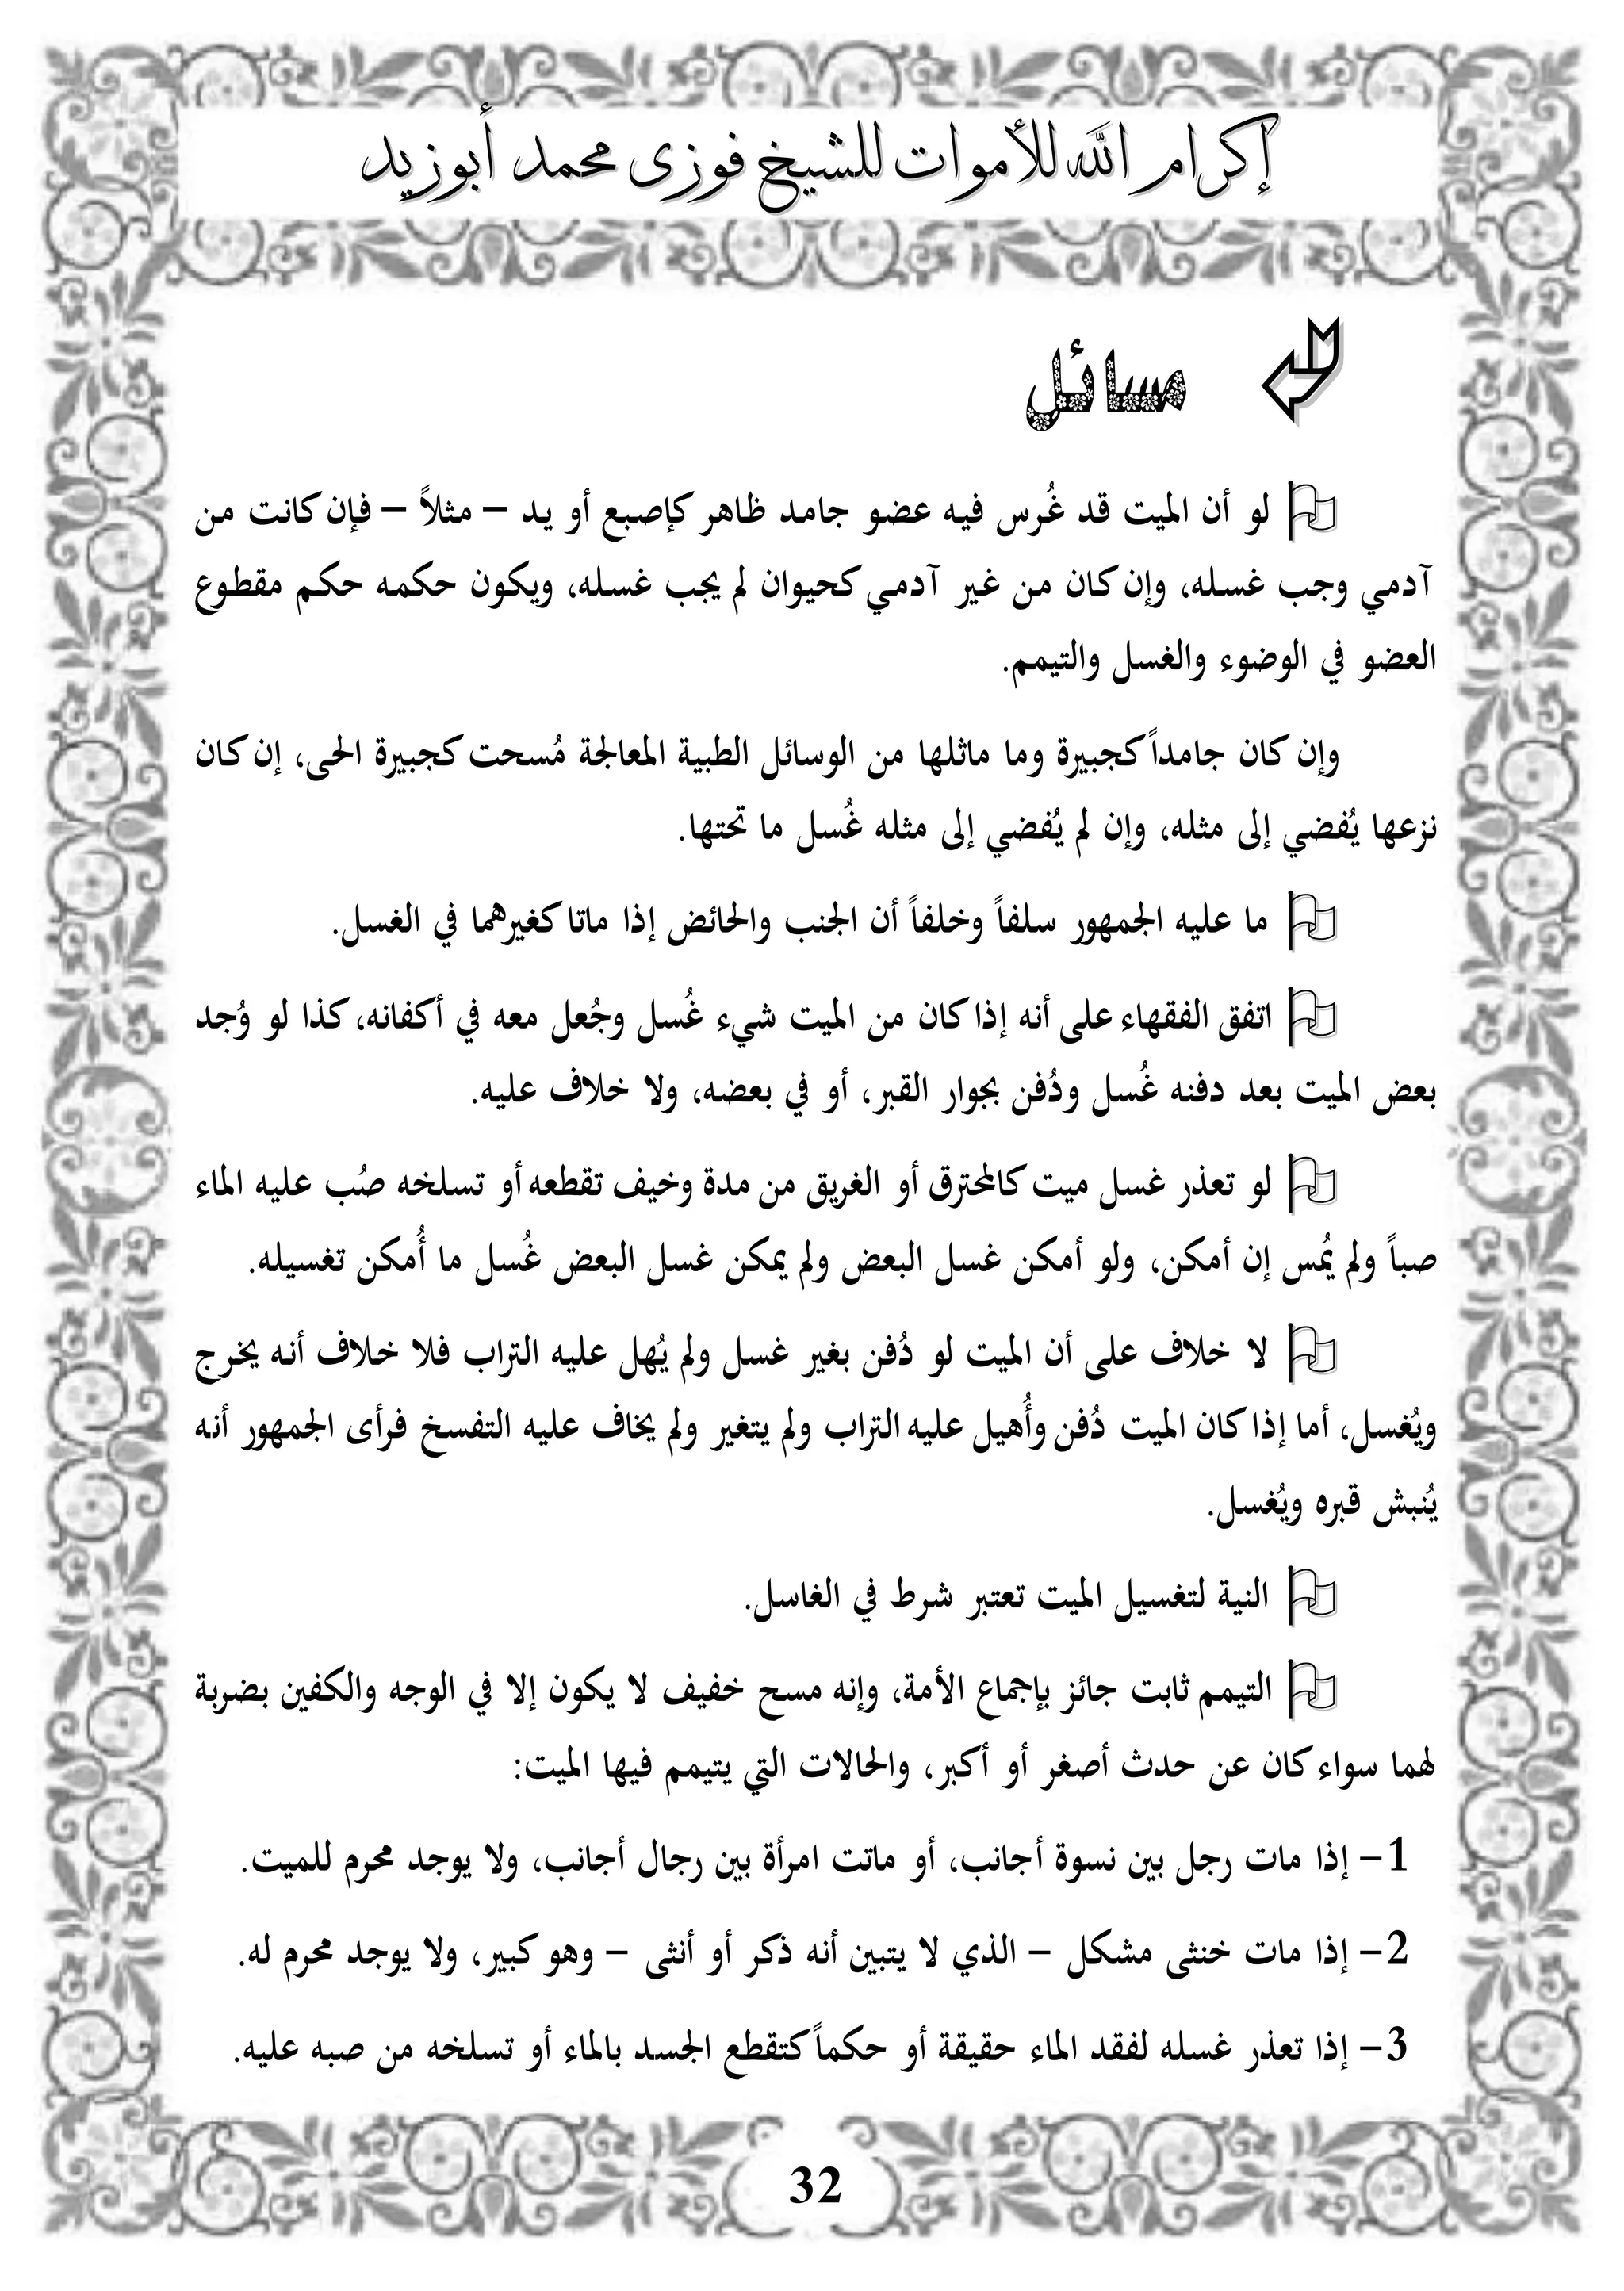 إكرام الله للأموات للشيخ فوزى محمد أبوزيد
مسائل
لو أن الميت قد غُرس فيه عضو جامد ظاهر كإصبع أو يد – مثلاً – فإن كانت من
آدمي وجب غسله، وإن كان من غير آدمي كحيوان لم يجب غسله، ويكون حكمه حكم مقطوع
العضو في الوضوء والغسل والتيمم.
وإن كان جامداً كجبيرة وما ماثلها من الوسائل الطبية المعالجة مُسحت كجبيرة الحى، إن كان
نزعها يُفضي إلى مثله، وإن لم يُفضي إلى مثله غُسل ما تحتها.
ما عليه الجمهور سلفاً وخلفاً أن الجنب والحائض إذا ماتا كغيرهما في الغسل.
اتفق الفقهاء على أنه إذا كان من الميت شيء غُسل وجُعل معه في أكفانه، كذا لو وُجد
بعض الميت بعد دفنه غُسل ودُفن بجوار القبر، أو في بعضه، ولا خلاف عليه.
لو تعذر غسل ميت كالمحترق أو الغريق من مدة وخيف تقطعه أو تسلخه صُب عليه الماء
صباً ولم يُمس إن أمكن، ولو أمكن غسل البعض ولم يمكن غسل البعض غُسل ما أُمكن تغسيله.
لا خلاف على أن الميت لو دُفن بغير غسل ولم يُهل عليه التراب فلا خلاف أنه يخرج
ويُغسل، أما إذا كان الميت دُفن وأُهيل عليه التراب ولم يتغير ولم يخاف عليه التفسخ فرأى الجمهور أنه
يُنبش قبره ويُغسل.
النية لتغسيل الميت تعتبر شرط في الغاسل.
التيمم ثابت جائز بإجماع الأمة، وإنه مسح خفيف لا يكون إلا في الوجه والكفين بضربة
لهما سواء كان عن حدث أصغر أو أكبر، والحالات التي يتيمم فيها الميت:
1- إذا مات رجل بين نسوة أجانب، أو ماتت امرأة بين رجال أجانب، ولا يوجد محرم للميت.
2- إذا مات خنثى مشكل – الذي لا يتبين أنه ذكر أو أنثى – وهو كبير، ولا يوجد محرم له.
3- إذا تعذر غسله لفقد الماء حقيقة أو حكماً كتقطع الجسد بالماء أو تسلخه من صبه عليه.
32